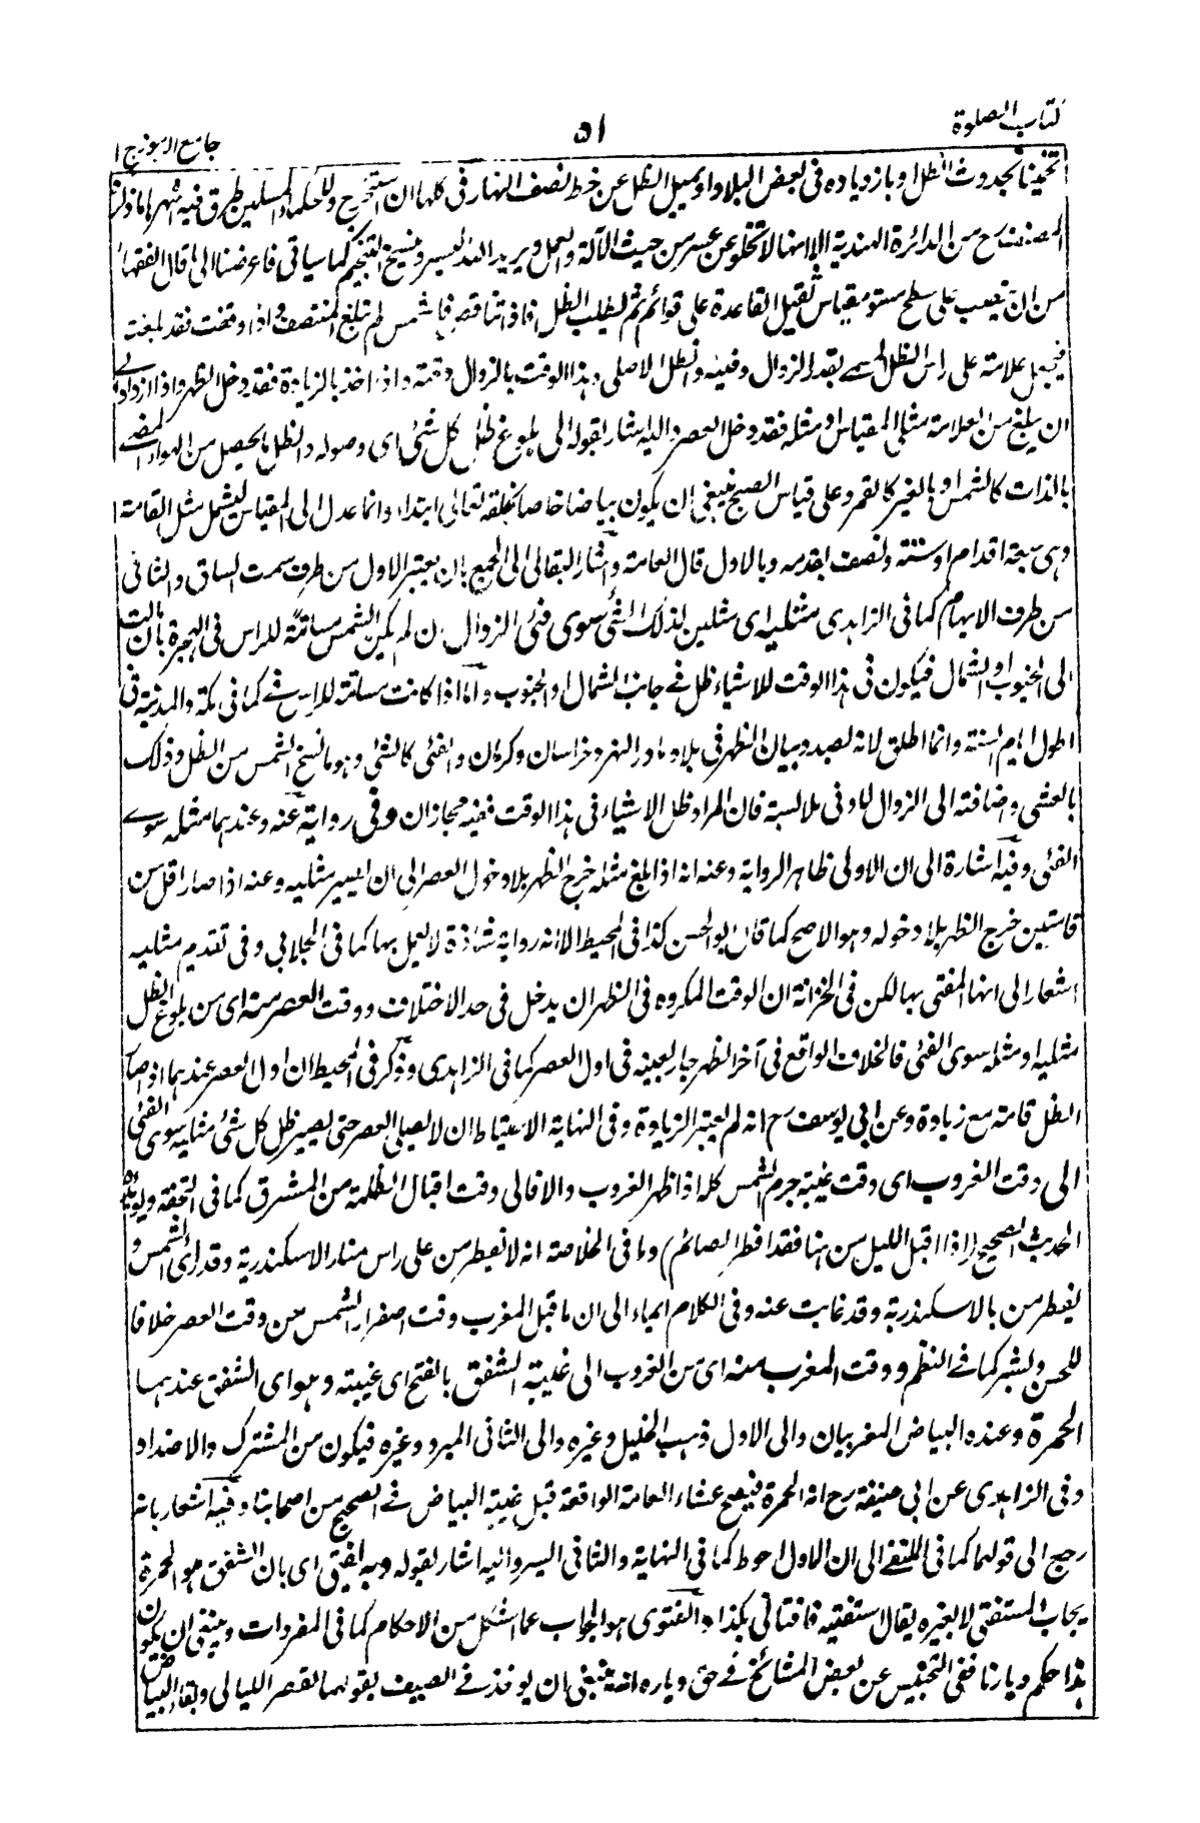 كتاب الصلوة
٥١
جامع الرموز ج ١
تخمينا بحدوث الظل او بازدياده فى بعض البلاد او بميل الظل عن خط نصف النهار فى كلها ان استخرج وللحكماء المسلمين طرق فيه اشهرها ما ذكره
المصنف رح من الدائرة الهندية الا انها لا تخلو عن عسر من حيث الآلة والعمل ويريد الله اليسر وينسخ التنجيم كما سياتى فاعرضنا الى ما قال الفقهاء
من ان ينصب على سطح مستو مقياس ثقيل القاعدة على قوائم ثم لطلب الظل فاذا تناقص فالشمس لم تبلغ المنتصف واذا وقفت فقد بلغت
فيجعل علامة على راس الظل المسمى بقدر الزوال وفيئه والظل الاصلى وهذا الوقت بالزوال وقمته واذا اخذ بالزيادة فقد دخل الظهر واذا ازداد الى
ان يبلغ من العلامة مثلى المقياس او مثله فقد دخل العصر واليه اشار بقوله الى بلوغ ظل كل شئ اى وصوله والظل ما يحصل من الهواء المضئ
بالذات كالشمس او بالغير كالقمر وعلى قياس الصبح ينبغى ان يكون بياضا خاصا بخلقه تعالى ابتداء وانما عدل الى المقياس ليشمل مثل القامة
وهى سبعة اقدام او ستة ونصف بقدمه وبالاول قال العامة واشار البقالى الى الجمع بان يعتبر الاول من طرف سمت الساق والثانى
من طرف الابهام كما فى الزاهدى مثليه اى مثلين لذلك الشئ سوى فئ الزوال ان لم يكن الشمس مسامتة للراس فى الهجرة بان مالت
الى الجنوب او الشمال فيكون فى هذا الوقت للاشياء ظل فى جانب الشمال او الجنوب واما اذا كانت مسامتة للراس فى كما فى مكة والمدينة فى
اطول ايام السنة وانما اطلق لانه بصدد بيان الظهر فى بلاد ما وراء النهر وخراسان وكرمان والفئى كالشئ وهو ما نسخ الشمس من الظل وذلك
بالعشى واضافته الى الزوال لادنى ملابسة فان المراد ظل الاشياء فى هذا الوقت ففيه مجازان وفى رواية عنه وعندهما مثله سوى
الفئى وفيه اشارة الى ان الاولى ظاهر الرواية وعنه انه اذا بلغ مثله خرج الظهر بلا دخول العصر الى ان يصير مثليه وعنه اذا صار اقل من
قامتين خرج الظهر بلا دخوله وهو الاصح كما قال ابو الحسن كذا فى المحيط الا انه رواية شاذة لا يعمل بها كما فى الجلابى وفى تقديم مثليه
اشعار الى انها المفتى بها لكن فى الخزانة ان الوقت المكروه فى الظهر ان يدخل فى حد الاختلاف ووقت العصر منه اى من بلوغ الظل
مثليه او مثله سوى الفئى فالخلاف الواقع فى آخر الظهر جار بعينه فى اول العصر كما فى الزاهدى وذكر فى المحيط ان اول العصر عندهما اذا صار
الظل قامة مع زيادة وعن ابى يوسف رح انه لم يعتبر الزيادة وفى النهاية الاحتياط ان لا يصلى العصر حتى يصير ظل كل شئ مثليه سوى الفئى
الى وقت الغروب اى وقت غيبة جرم الشمس كله اذا ظهر الغروب والا فالى وقت اقبال الظلمة من المشرق كما فى التحفة ويؤيده
الحديث الصحيح (اذا اقبل الليل من هنا فقد افطر الصائم) وما فى الخلاصة انه لا يفطر من على راس منار الاسكندرية وقد رأى الشمس و
يفطر من بالاسكندرية وقد غابت عنه وفى الكلام ايماء الى ان ما قبل المغرب وقت اصفرار الشمس من وقت العصر خلافا
للحسن وبشر كما فى النظم ووقت المغرب منه اى من الغروب الى غيبة الشفق بالفتح اى غيبته وهو اى الشفق عندهما
الحمرة وعنده البياض المغربيان والى الاول ذهب الخليل وغيره والى الثانى المبرد وغيره فيكون من المشترك والاضداد
وفى الزاهدى عن ابى حنيفة رح انه الحمرة فيصح عشاء العامة الواقعة قبل غيبة البياض فى الصحيح من اصحابنا وفيه اشعار بانه
رجع الى قولهما كما فى الملتقى الى ان الاول احوط كما فى النهاية والثانى اليسر واليه اشار بقوله وبه يفتى اى بان الشفق هو الحمرة
يجاب المستفتى لا بغيره يقال استفتيه فافتانى بكذا والفتوى هو الجواب عما اشكل من الاحكام كما فى المفردات وينبغى ان يكون
هذا حكم ديارنا ففى التجنيس عن بعض المشائخ فى حق دياره انه ينبغى ان يوخذ فى الصيف بقولهما لقصر الليالى وبقاء البياض